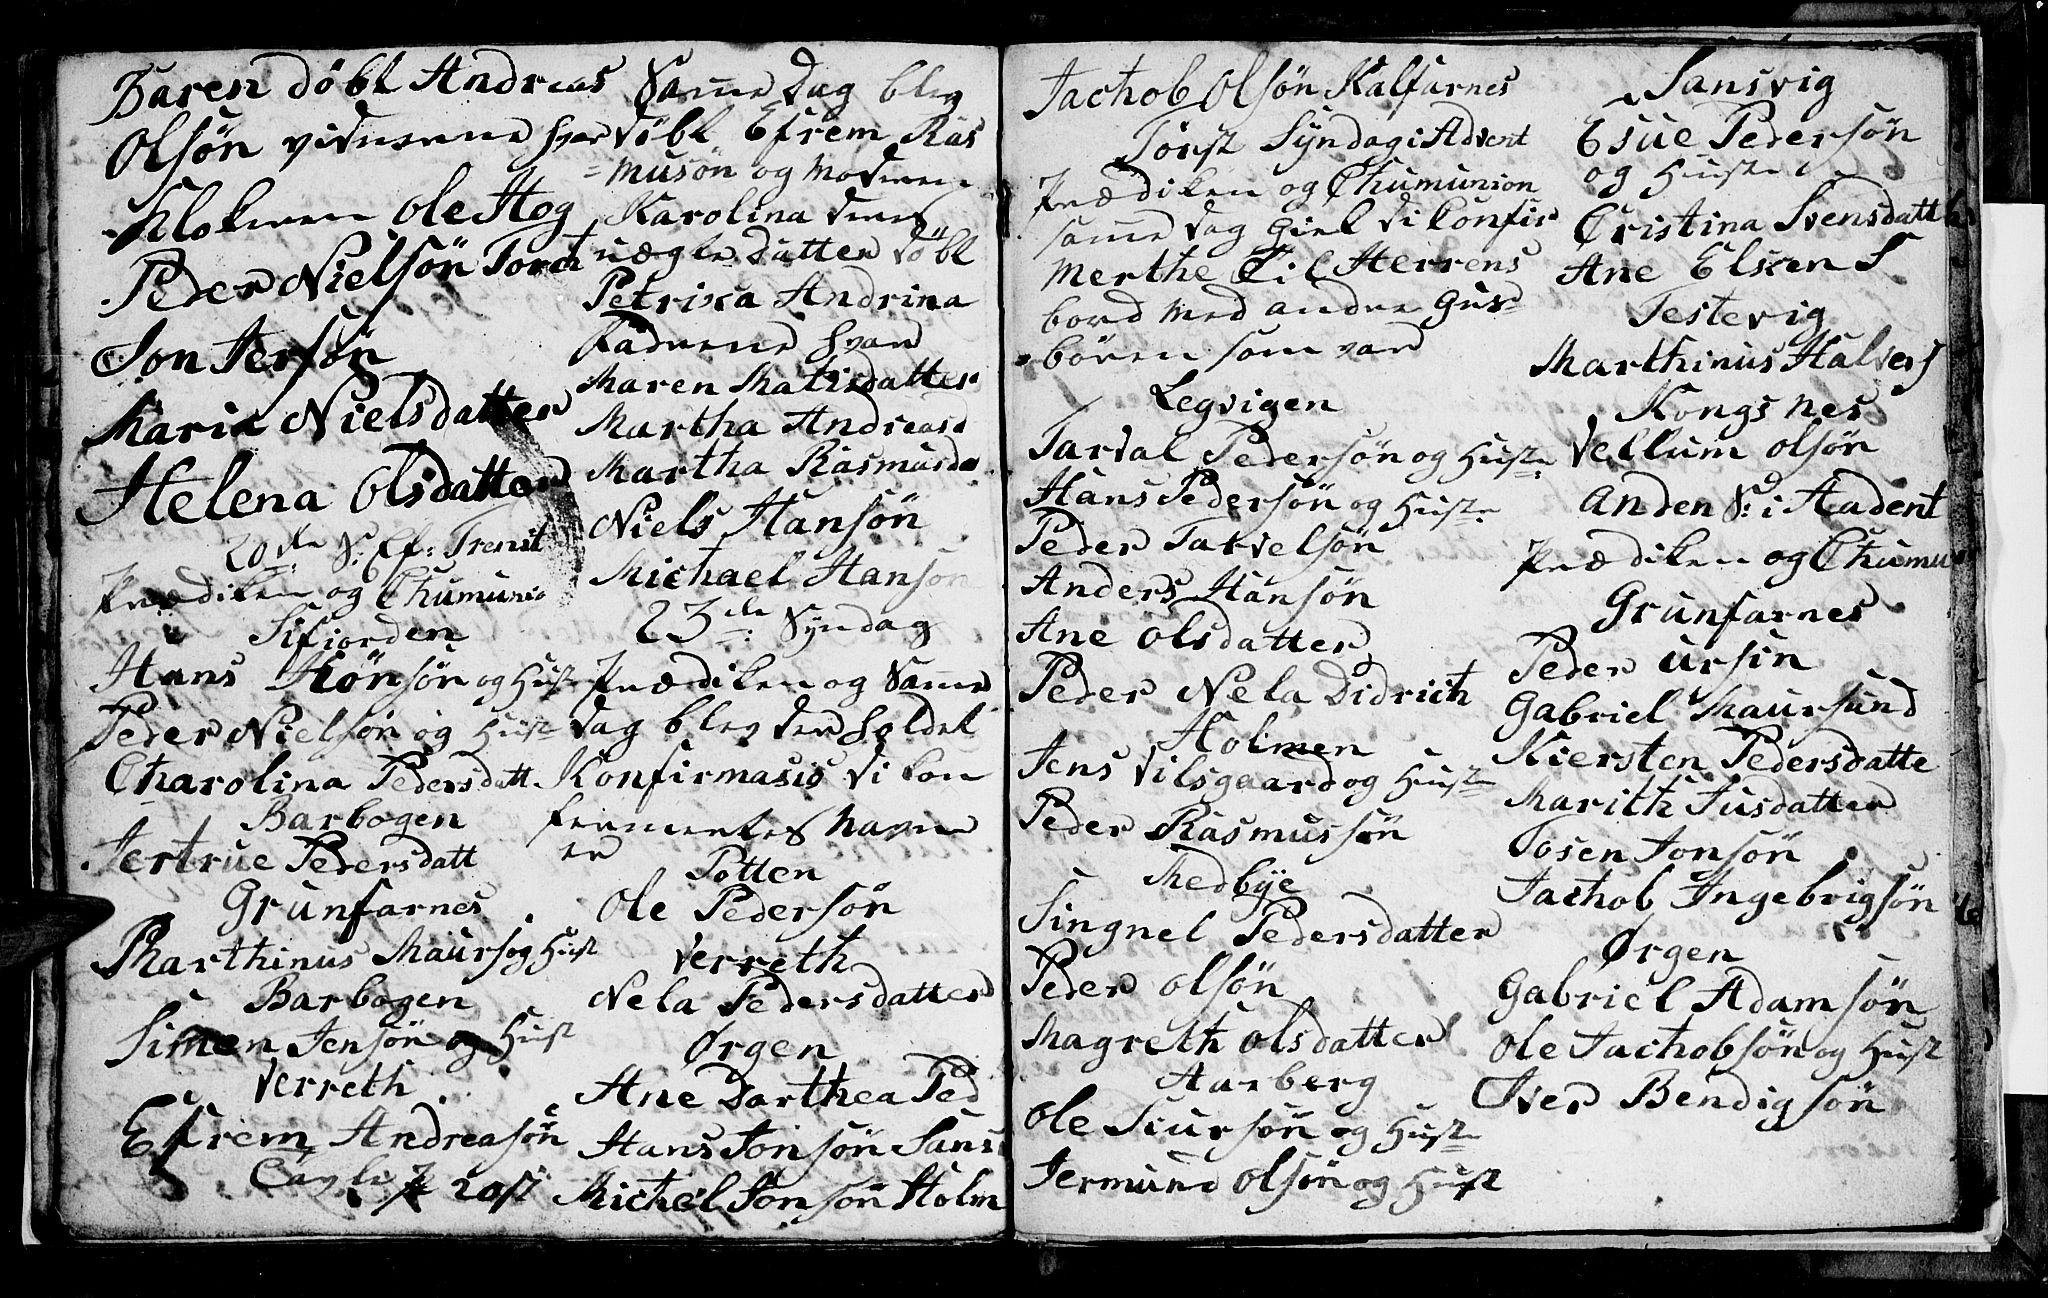 Baren döbt Andreas
Olsön vidnerne hvar
Klokeren Ole Hog
Peder Nielsön Torch
Jon Jersön
Maria Nielsdatter
Helena Olsdatter
20de S: Ef: Trenit
Prædiken og Chumunio
Sifiorden
Hans Hönsön og Hust
Peder Nielsön og Hust
Charolina Pedersdatt
Barbogen
Jertrue Pedersdatt
Grunfarnes
Marthinus Maurs og Hust
Barbogen
Simen Jensön og Hust
Verreth
Efrem Andreasön
20st
Same Dag blev
döbt Efrem Ras
=musön og Moderen
Karolina deres
uægte Datter döbt
Petrixa Andrina
Fadrene hvar
Maren Matisdatter
Martha Andreasd
Martha Rasmusda
Niels Hansön
Michael Hansön
23de Syndag
Prædiken og Same
dag blev der holdet
Konfirmasis di kon
fermertes Navne
er
Potten
Ole Pedersön
Verreth
Nela Pedersdatter
Ørgen
Ane Darthea Ped
Hans Jonsön Sans
Michel Jonsön Holm
Jachob Olsön Kalfarnes
Först Syndag i Advent
Prædiken og Chumunion
same dag giek di konfir
merthe Til Herrens
bord med andre Gus
=börn som var
Legvigen
Tarval Pedersön og Hust
Hans Pedersön og Hust
Peder Tarvelsön
Anders Hansön
Ane Olsdatter
Peder Nela Didrich
Holmen
Jens Vilsgaard og Hust
Peder Rasmussön
Medbye
Singnel Pedersdatter
Peder Olsön
Magreth Olsdatter
Aarberg
Ole Siursön og Hust
Jermund Olsön og Hust
Sansvig
Esue Pedersön
og Hustru
Cristina Svensdatter
Ane Elsken S
Testevig
Marthinus Halvers
Kongsnes
Vellum Olsön
Anden S: i Aadent
Prædiken og Chumu
Grunfarnes
Peder Ursin
Gabriel Maursund
Kiersten Pedersdatte
Marith Jusdatter
Josen Jonsön
Jachob Ingebrigsön
Ørgen
Gabriel Adamsön
Ole Jachobsön og Hust
Iver Bendigsön